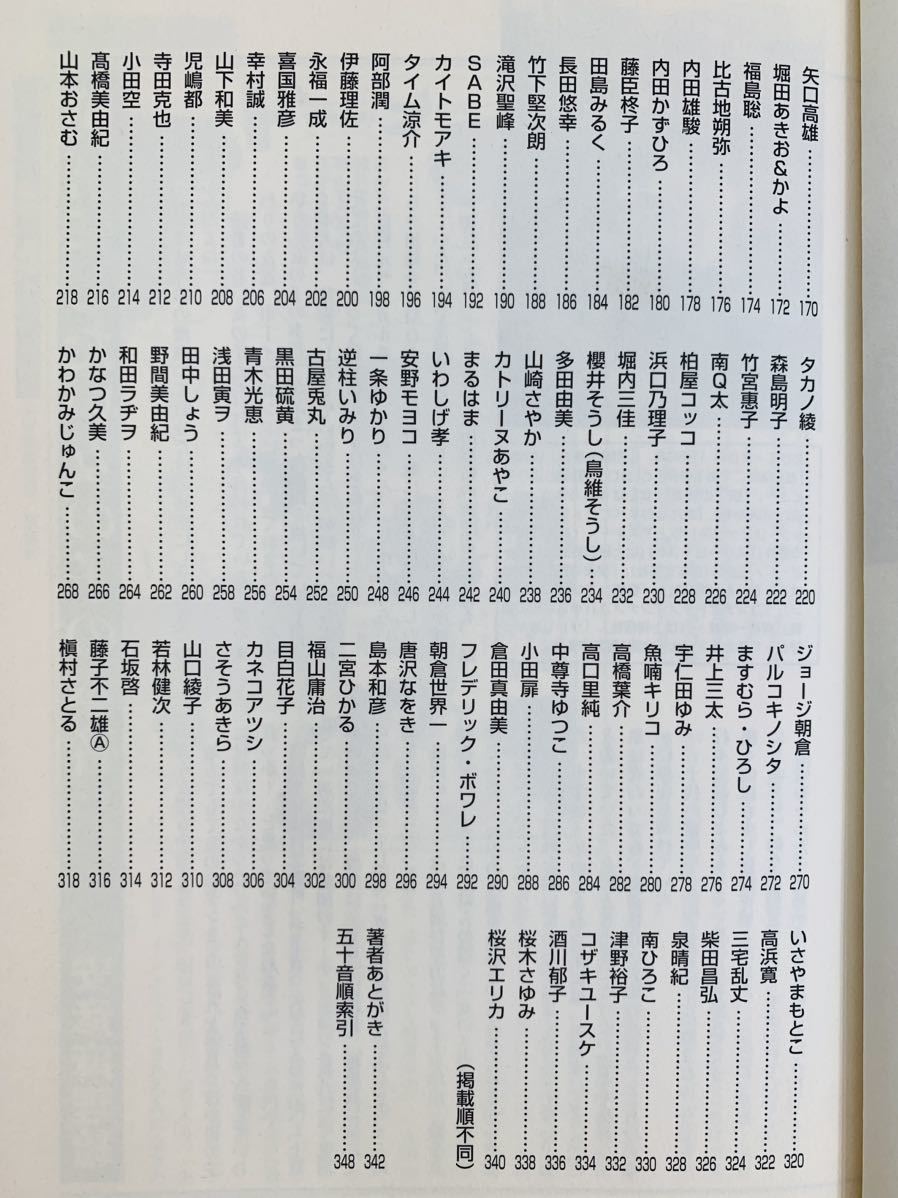 矢口高雄……………170
堀田あきお&かよ……………172
福島聡……………174
比古地朔弥……………176
内田雄駿……………178
内田かずひろ……………180
藤臣柊子……………182
田島みるく……………184
長田悠幸……………186
竹下堅次朗……………188
滝沢聖峰……………190
SABE……………192
カイトモアキ……………194
タイム涼介……………196
阿部潤……………198
伊藤理佐……………200
永福一成……………202
喜国雅彦……………204
幸村誠……………206
山下和美……………208
児嶋都……………210
寺田克也……………212
小田空……………214
髙橋美由紀……………216
山本おさむ……………218
タカノ綾……………220
森島明子……………222
竹宮惠子……………224
南Q太……………226
柏屋コッコ……………228
浜口乃理子……………230
堀内三佳……………232
櫻井そうし(鳥維そうし)……234
多田由美……………236
山崎さやか……………238
カトリーヌあやこ……………240
まるはま……………242
いわしげ孝……………244
安野モヨコ……………246
一条ゆかり……………248
逆柱いみり……………250
古屋兎丸……………252
黒田硫黄……………254
青木光恵……………256
浅田寅ヲ……………258
田中しょう……………260
野間美由紀……………262
和田ラヂヲ……………264
かなつ久美……………266
かわかみじゅんこ……………268
ジョージ朝倉……………270
パルコキノシタ……………272
ますむら・ひろし……………274
井上三太……………276
宇仁田ゆみ……………278
魚喃キリコ……………280
高橋葉介……………282
高口里純……………284
中尊寺ゆつこ……………286
小田扉……………288
倉田真由美……………290
フレデリック・ボワレ……………292
朝倉世界一……………294
唐沢なをき……………296
島本和彦……………298
二宮ひかる……………300
福山庸治……………302
目白花子……………304
カネコアツシ……………306
さそうあきら……………308
山口綾子……………310
若林健次……………312
石坂啓……………314
藤子不二雄Ⓐ……………316
槇村さとる……………318
いさやまもとこ……………320
高浜寛……………322
三宅乱丈……………324
柴田昌弘……………326
泉晴紀……………328
南ひろこ……………330
津野裕子……………332
コザキユースケ……………334
酒川郁子……………336
桜木さゆみ……………338
桜沢エリカ……………340
(掲載順不同)
著者あとがき……………342
五十音順索引……………348